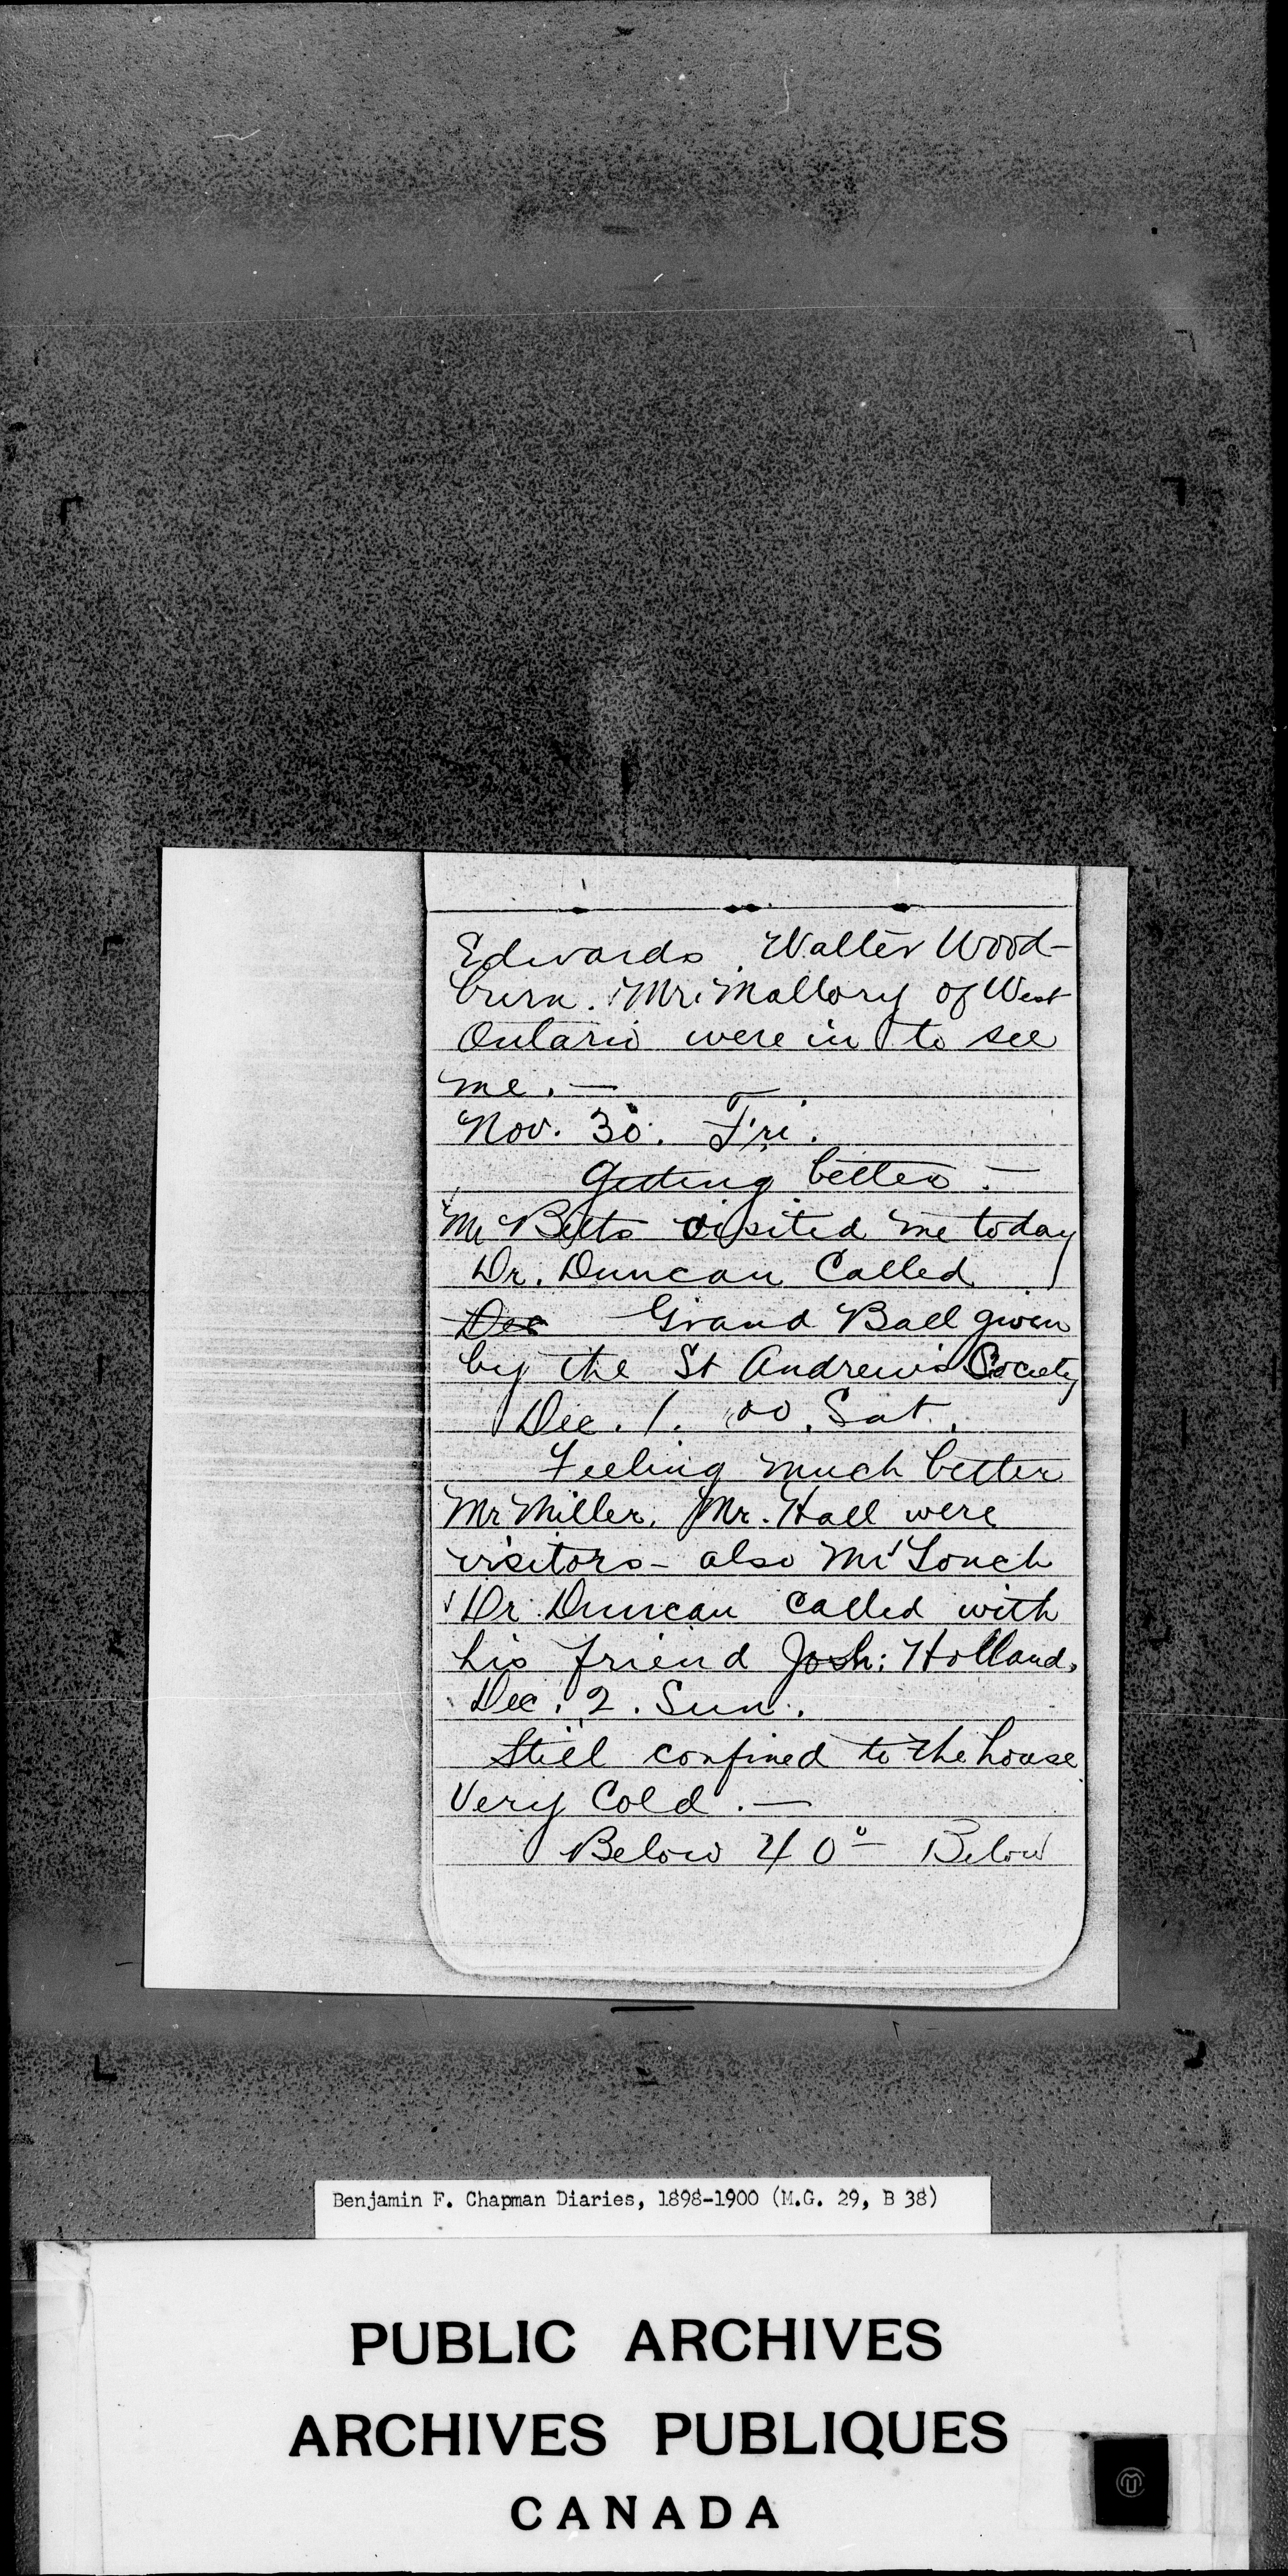 Edwards. Walter Wood-
burn. Mr. Mallory of West
Ontario were in to see
me. —
Nov. 30. Fri.
Getting better. —
Mr Betts visited me today
Dr. Duncan Called
Dec Grand Ball given
by the St Andrew's Society
Dec. 1. 00. Sat.
Feeling much better
Mr Miller. Mr. Hall were
visitors - also Mr
Dr. Duncan called with
his friend Josh: Holland.
Dec. 2. Sun.
Still confined to the house
Very Cold. —
Below 40° — Below
Benjamin F. Chapman Diaries, 1898-1900 (M.G. 29, B 38)
PUBLIC ARCHIVES
ARCHIVES PUBLIQUES
CANADA